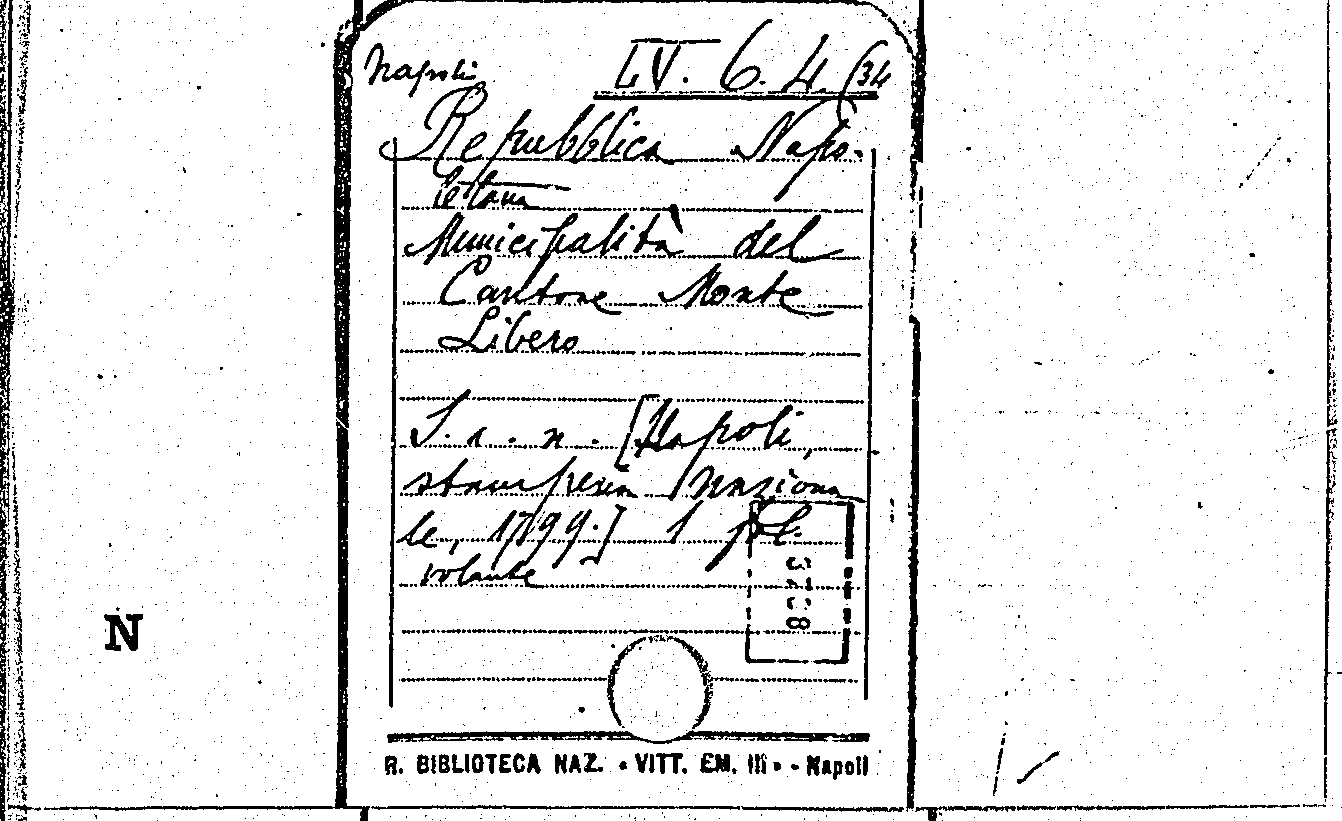 Napoli
LV. 6. 4. (34
Repubblica Napo-
letana
Municipalità del
Cantone Monte
Libero
S. i. n. [Napoli,
stamperia Naziona
le, 1799.] 1 fol.
volante
N
R. BIBLIOTECA NAZ. « VITT. EM. III » - Napoli